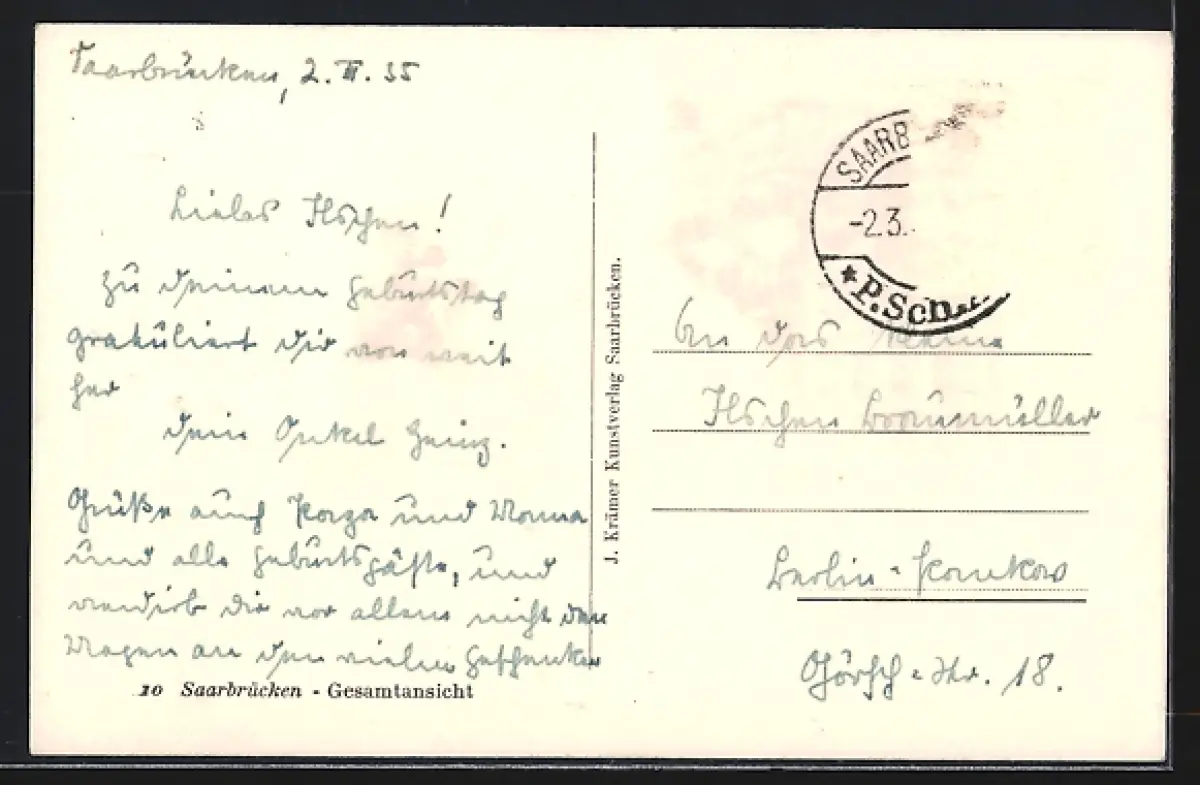 Saarbrücken, 2. III. 35
Liebes Ilschen!
Zu deinem Geburtstag
gratuliert dir von weit
her
dein Onkel Heinz.
Grüße auch Papa und Mama
und alle Geburtsgäste, und
verdirb dir vor allem nicht den
Magen an den vielen Geschenken
10 Saarbrücken - Gesamtansicht
J. Krämer Kunstverlag Saarbrücken.
SAARB
-2.3.
* P.Sch
An das kleine
Ilschen Braumüller
Berlin-Pankow
Görsch-Str. 18.